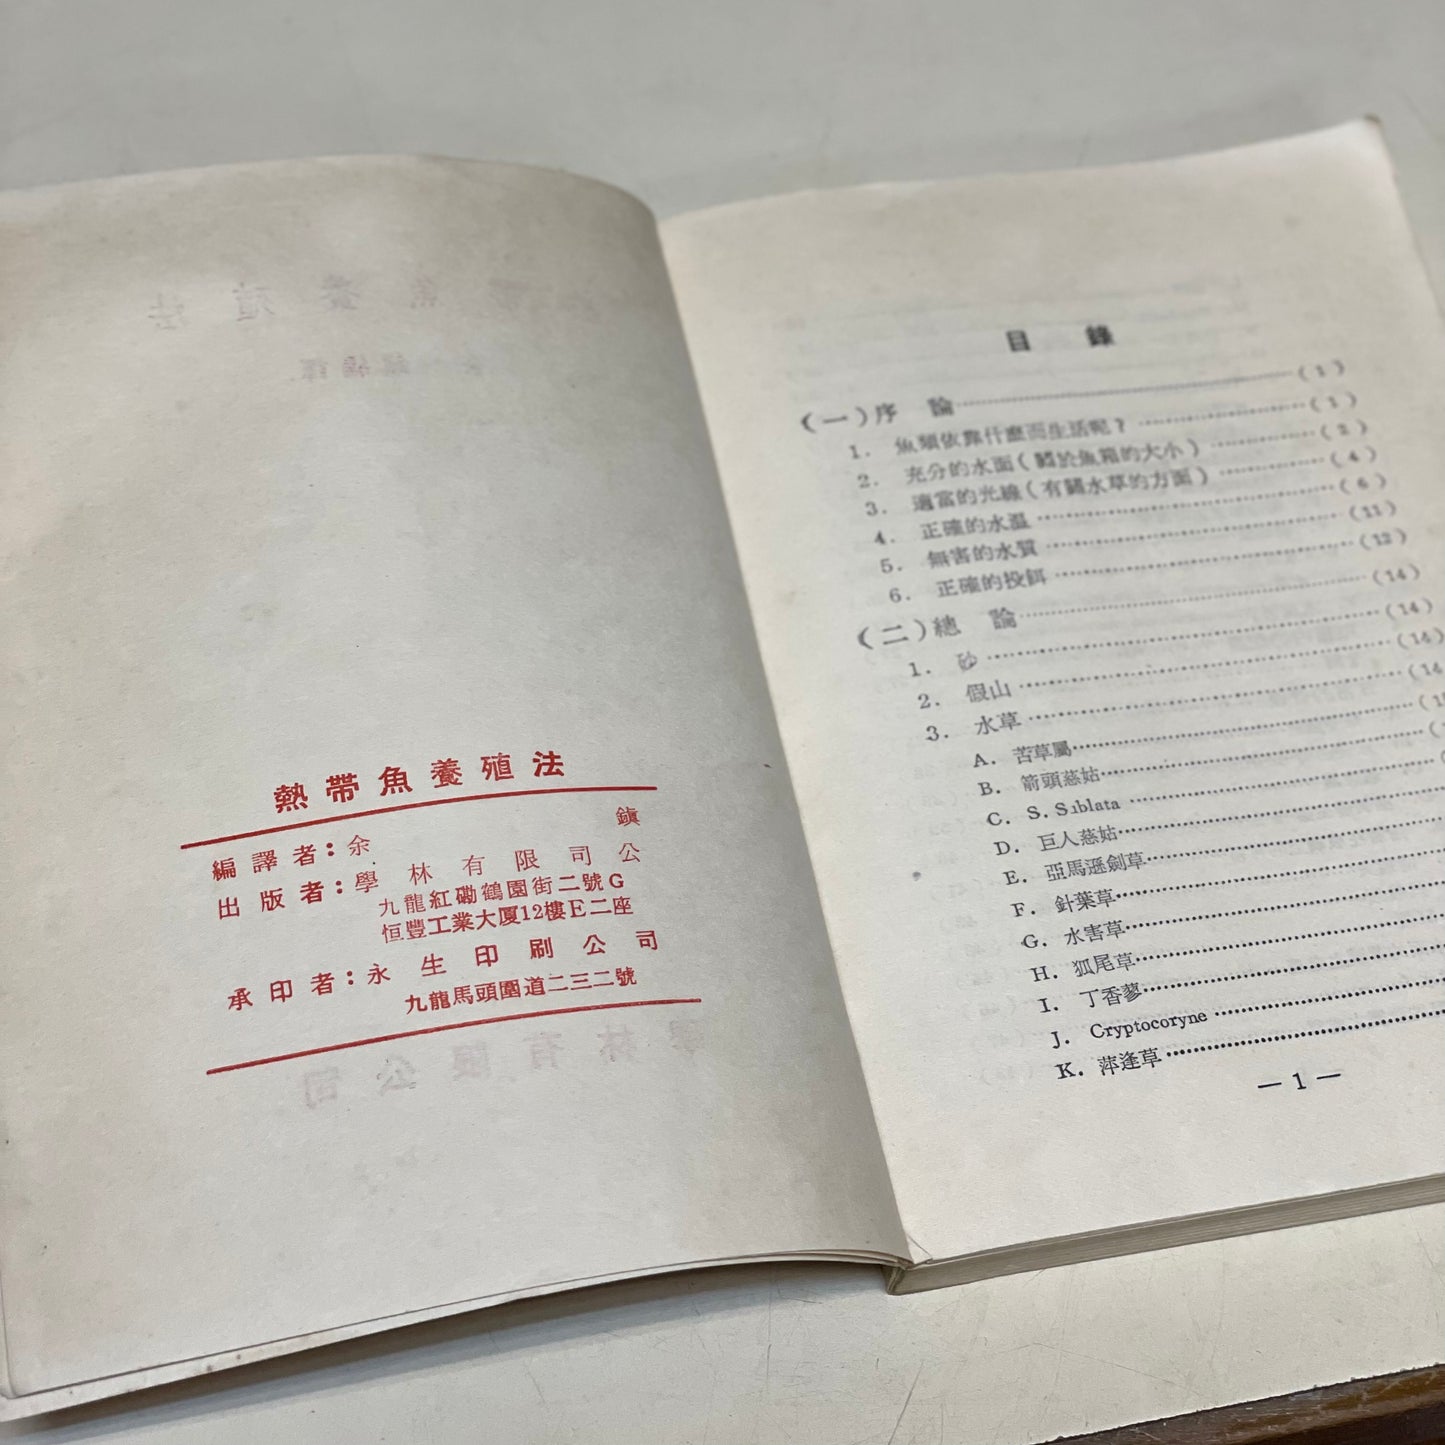 熱帶魚養殖法
編譯者：余 鎮
出版者：學林有限司公
九龍紅磡鶴園街二號G
恒豐工業大厦12樓E二座
承印者：永生印刷公司
九龍馬頭圍道二三二號
目 錄
（一）序 論……（1）
1. 魚類依靠什麼而生活呢？……（1）
2. 充分的水面（關於魚箱的大小）……（2）
3. 適當的光線（有關水草的方面）……（4）
4. 正確的水溫……（6）
5. 無害的水質……（11）
6. 正確的投餌……（12）
（二）總 論……（14）
1. 砂……（14）
2. 假山……（14）
3. 水草……（14
A. 苦草屬……
B. 箭頭慈姑……
C. S. Siblata……
D. 巨人慈姑……
E. 亞馬遜劍草……
F. 針葉草……
G. 水害草……
H. 狐尾草……
I. 丁香蓼……
J. Cryptocoryne……
K. 萍逢草……
— 1 —